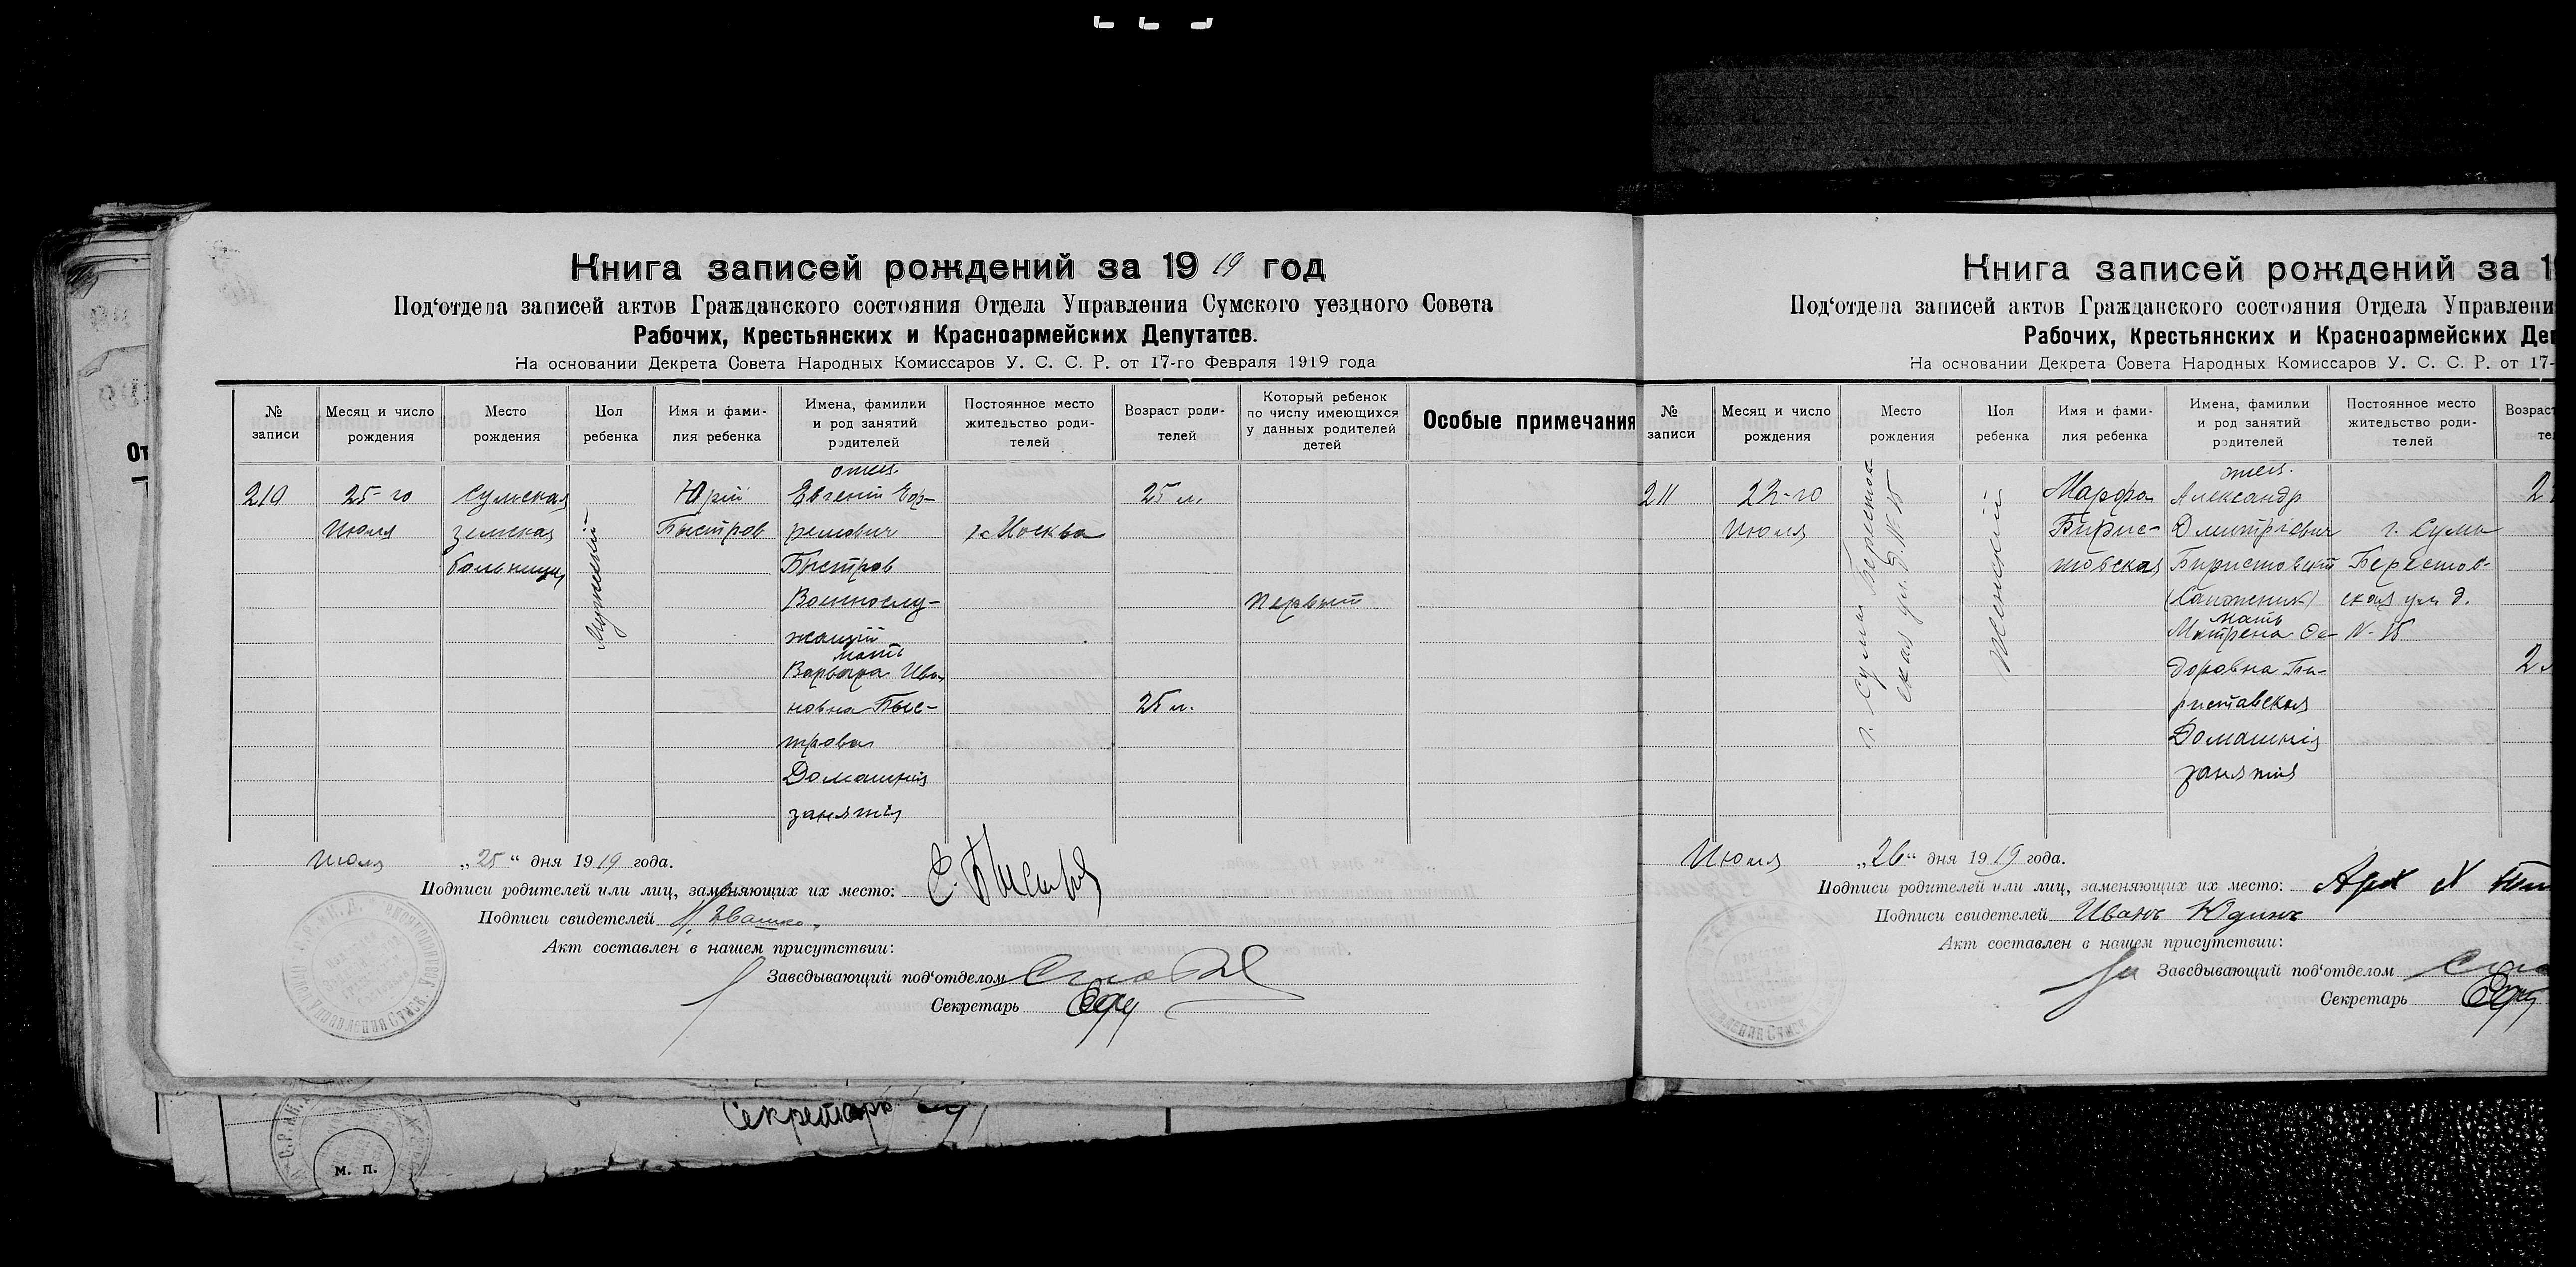 Книга записей рождений за 1919 год
Под‘отдела записей актов Гражданского состояния Отдела Управления Сумского уездного Совета
Рабочих, Крестьянских и Красноармейских Депутатов.
На основании Декрета Совета Народных Комиссаров У. С. С. Р. от 17-го Февраля 1919 года
№ записи
Месяц и число рождения
Место рождения
Пол ребенка
Имя и фами-
лия ребенка
Имена, фамилии
и род занятий
родителей
Постоянное место
жительство роди-
телей
Возраст роди-
телей
Который ребенок
по числу имеющихся
у данных родителей
детей
Особые примечания
210
25-го
Июля
Сумская
земская
больница
Мужеский
Юрій
Быстров
отец
Евгений
Быстров
Воиннослу-
жащий
мать
Варвара Ива
новна Быс-
трова
Домашнія
занятія
г. Москва
25 л.
25 л.
Первый
Июля „25“ дня 1919 года.
Подписи родителей или лиц, заменяющих их место:
Подписи свидетелей
Акт составлен в нашем присутствии:
Заведывающий под‘отделом
Секретарь
Книга записей рождений за 1
Под‘отдела записей актов Гражданского состояния Отдела Управлени
Рабочих, Крестьянских и Красноармейских Деп
На основании Декрета Совета Народных Комиссаров У. С. С. Р. от 17-
№ записи
Месяц и число рождения
Место рождения
Пол ребенка
Имя и фами-
лия ребенка
Имена, фамилии
и род занятий
родителей
Постоянное место
жительство роди-
телей
Возраст
те
211
Июля
г. Сумы Берестов
ская ул. д. № 15
Женский
Марфа
отец
Александр
Дмитріевич
(Сапожник)
мать
Матрена
Домашнія
занятія
г. Сумы
Берестов-
ская ул д.
№ 15
Июля „26“ дня 1919 года.
Подписи родителей или лиц, заменяющих их место:
Подписи свидетелей Иванъ Юдинъ
Акт составлен в нашем присутствии:
За Заведывающий под‘отделом
Секретарь
От
Секретарь
М. П.